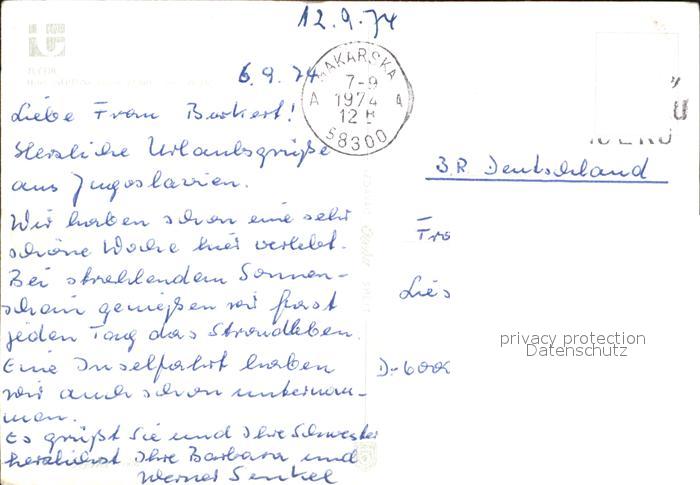 12.9.74
6.9.74
MAKARSKA
7-9
1974
12
A 4
58300
Liebe Frau Burkert!
Herzliche Urlaubsgrüße
aus Jugoslawien.
B.R. Deutschland
Wir haben schon eine sehr
schöne Woche hier verlebt.
Bei strahlendem Sonnen-
schein genießen wir fast
jeden Tag das Strandleben.
Eine Inselfahrt haben
wir auch schon unternom-
men.
Es grüßt Sie und Ihre Schwester
herzlichst Ihre Barbara und
Werner Senkel
Fra
Lies
D-6000
privacy protection
Datenschutz